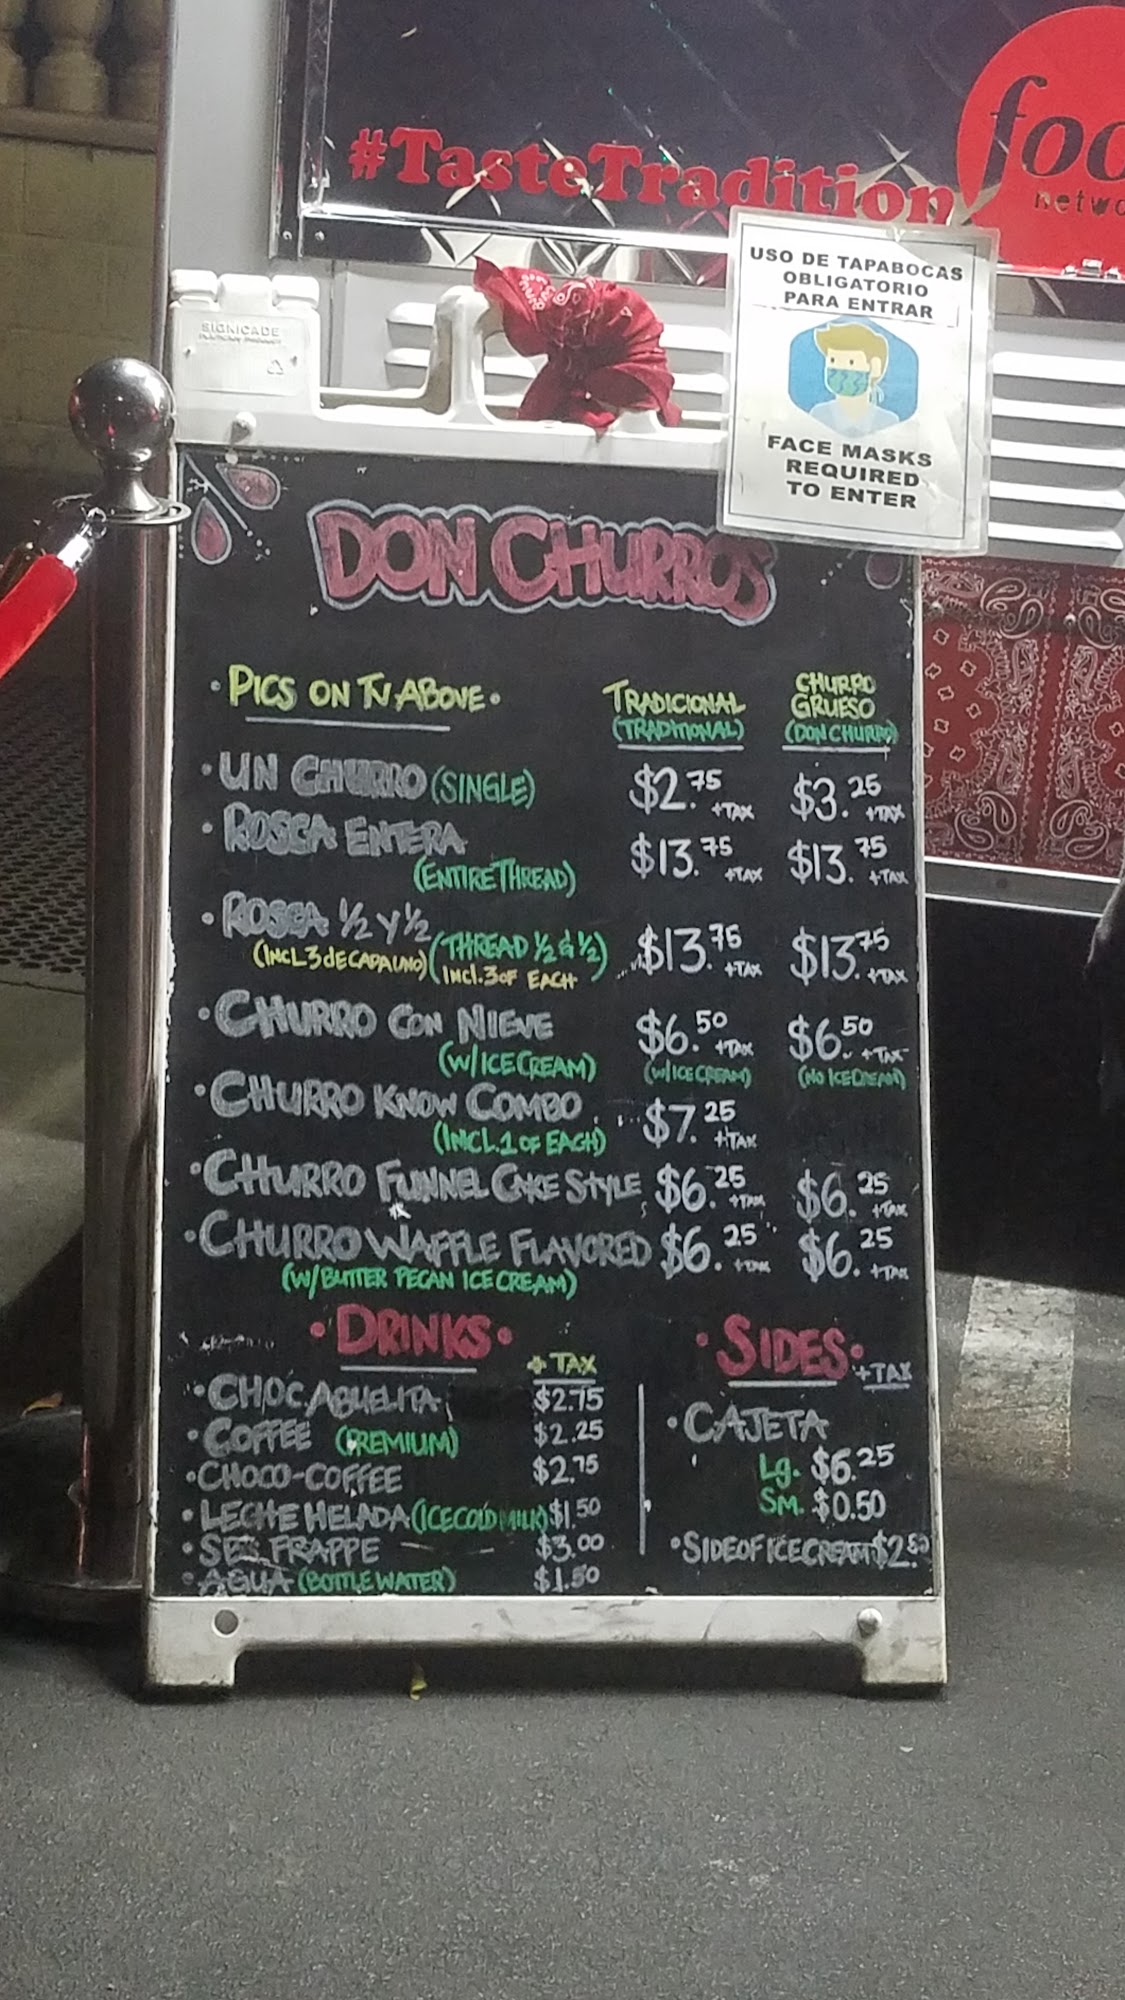 #TasteTradition
foo
netwo
USO DE TAPABOCAS
OBLIGATORIO
PARA ENTRAR
FACE MASKS
REQUIRED
TO ENTER
SIGNICADE
DON CHURROS
• PICS ON TV ABOVE •
TRADICIONAL
(TRADITIONAL)
CHURRO
GRUESO
(DON CHURRO)
• UN CHURRO (SINGLE) $2.75 +TAX $3.25 +TAX
• ROSCA ENTERA $13.75 +TAX $13.75 +TAX
(ENTIRE THREAD)
• ROSCA ½ Y ½ (THREAD ½ & ½) $13.75 +TAX $13.75 +TAX
(INCL 3 de CADA UNO) INCL. 3 OF EACH
• CHURRO CON NIEVE $6.50 +TAX $6.50 +TAX
(W/ICE CREAM) (W/ICE CREAM) (NO ICE CREAM)
• CHURRO KNOW COMBO $7.25 +TAX
(INCL. 1 OF EACH)
• CHURRO FUNNEL CAKE STYLE $6.25 +TAX $6.25 +TAX
• CHURRO WAFFLE FLAVORED $6.25 +TAX $6.25 +TAX
(W/BUTTER PECAN ICE CREAM)
• DRINKS •
+ TAX
• CHOC. ABUELITA $2.75
• COFFEE (PREMIUM) $2.25
• CHOCO-COFFEE $2.75
• LECHE HELADA (ICE COLD MILK) $1.50
• FRAPPE $3.00
• AGUA (BOTTLE WATER) $1.50
• SIDES •
+TAX
• CAJETA
Lg. $6.25
SM. $0.50
• SIDE OF ICE CREAM $2.50